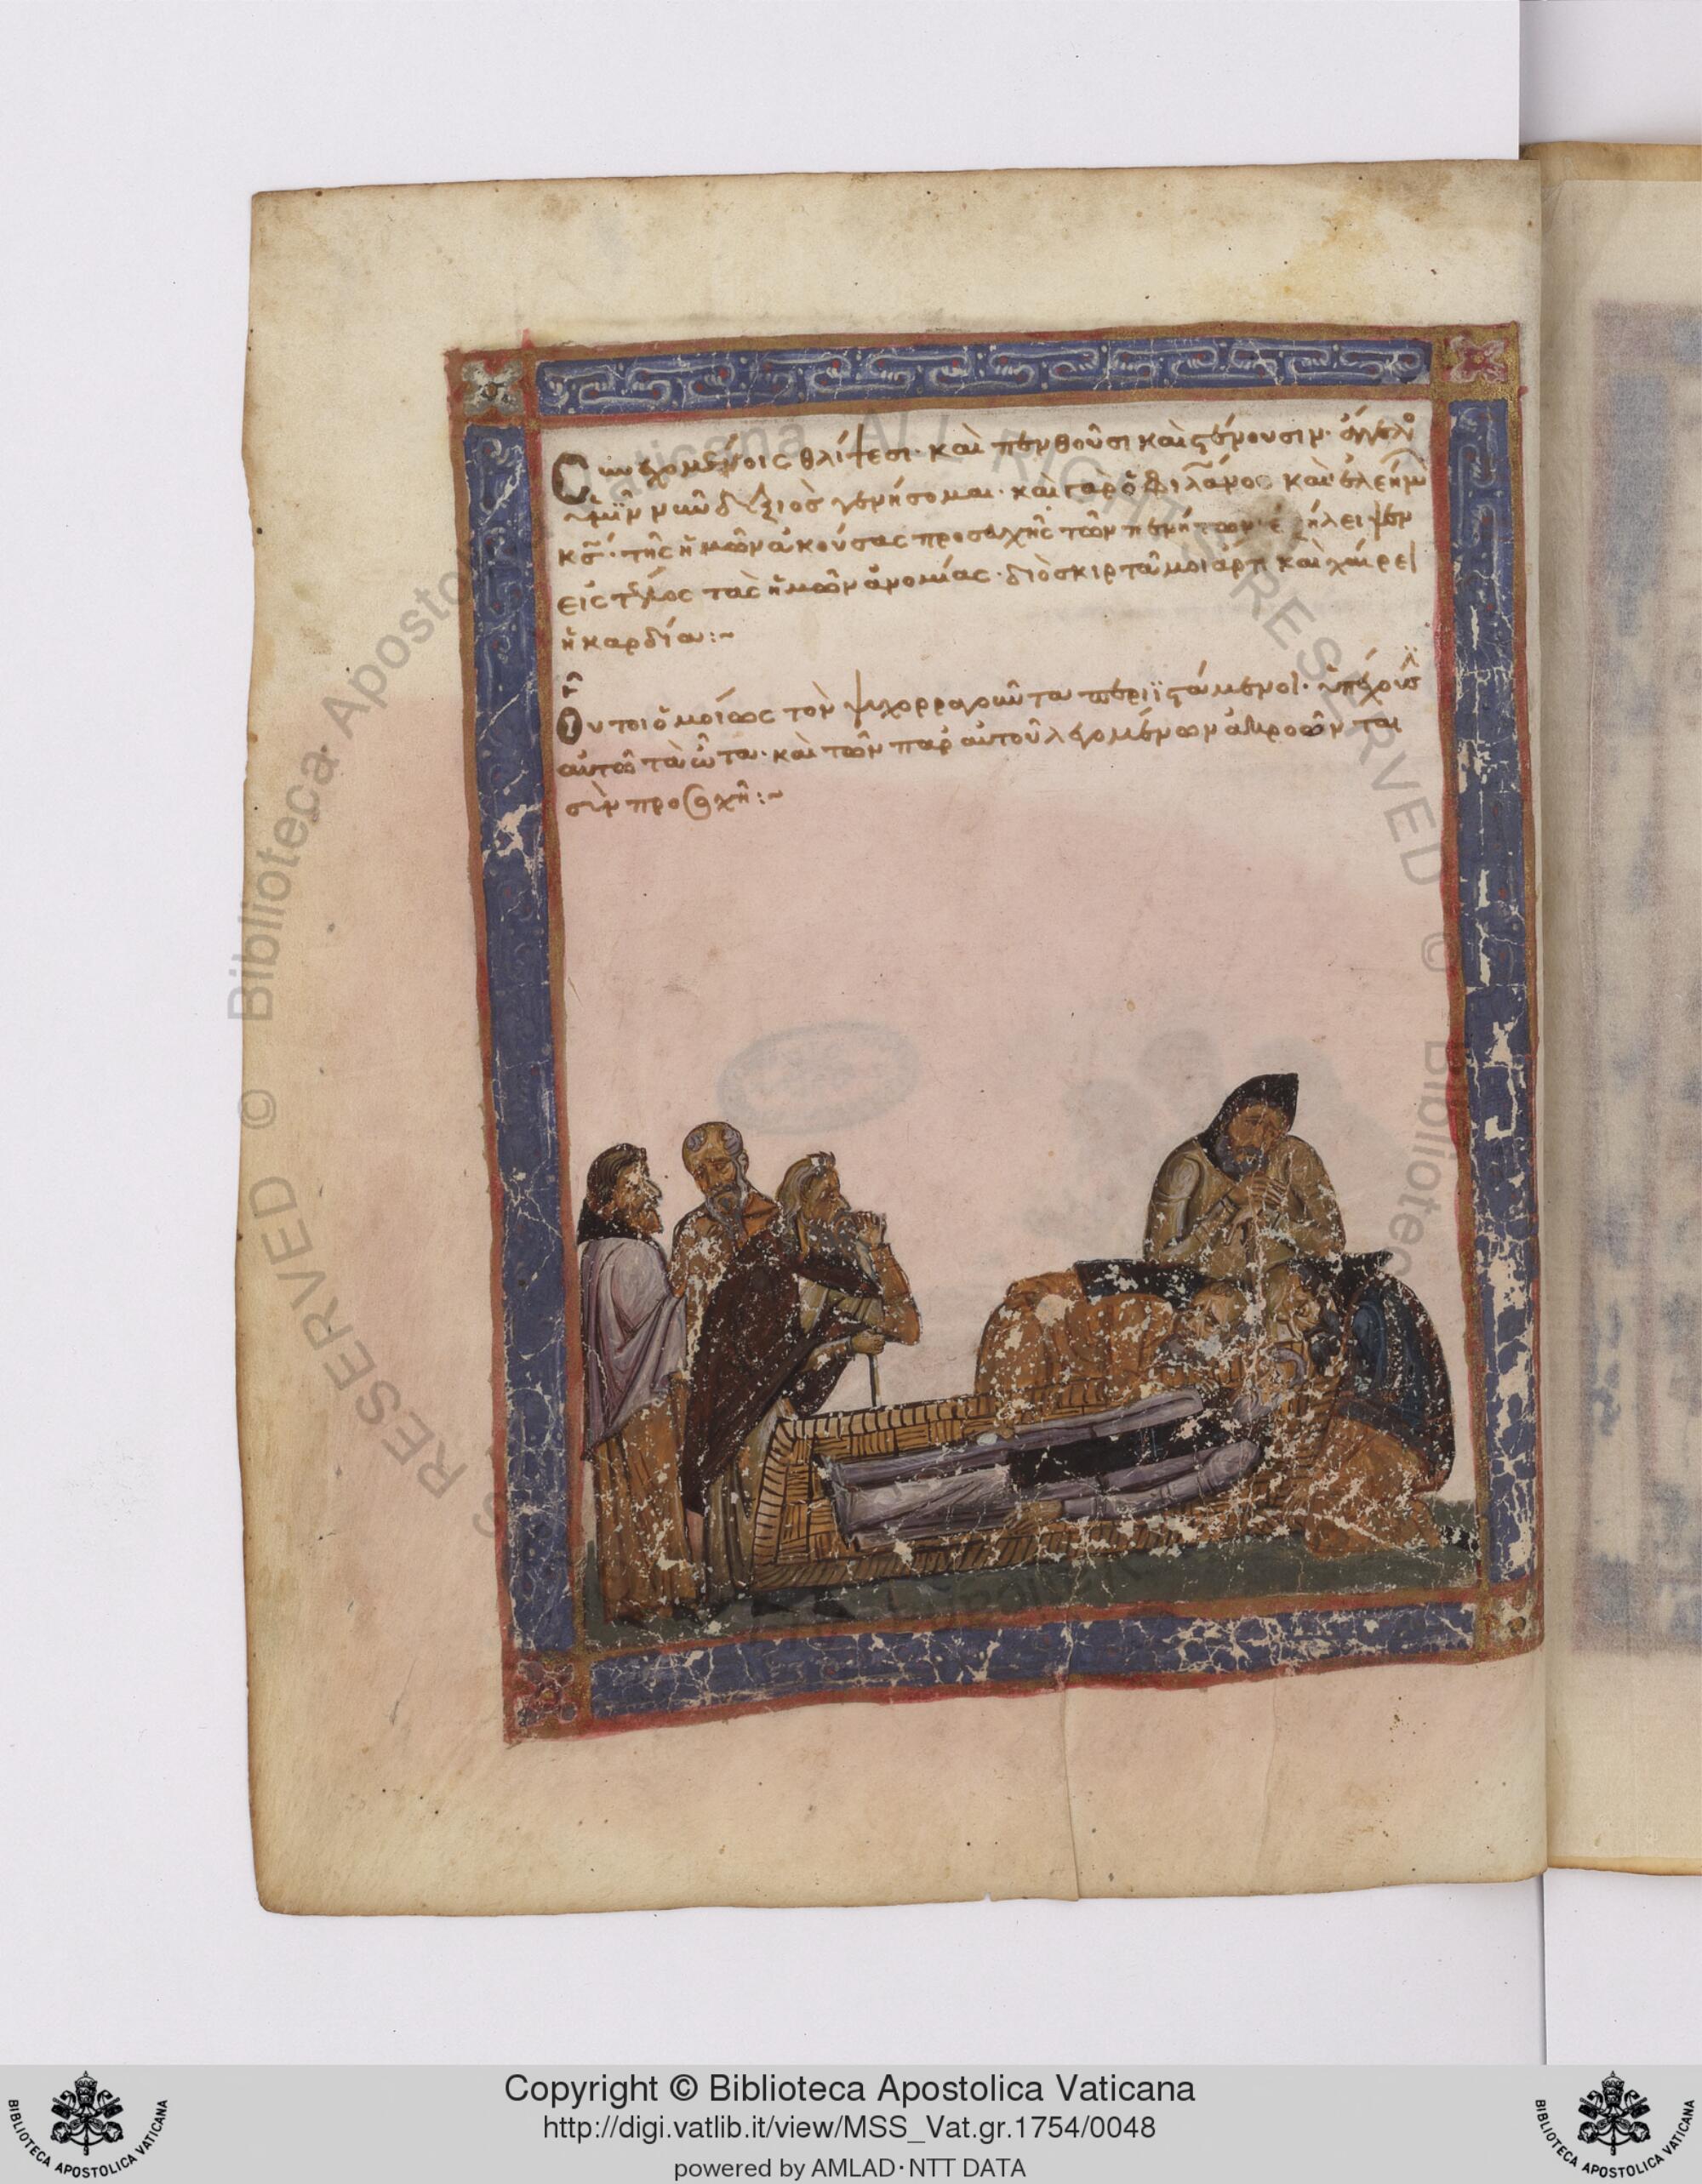 Συνεχομένοις θλίψεσι· καὶ πενθοῦσι καὶ στένουσιν· ἄγγελο
ὑμῖν νῦν δεξιὸς γενήσομαι· καὶ γὰρ ὁ φιλᾶνος καὶ ἐλεήμω
κς̅· τῆς ἡμῶν ἀκούσας προσευχῆς τῶν πενήτων· ἐξήλειψεν
εἰς τέλος τὰς ἡμῶν ἀνομίας· διὸ σκιρτᾶ μοι ἄρτι καὶ χαίρει
ἡ καρδία:~
Οὗτοι ὁμοίως τὸν ψυχορραγοῦντα περιϊστάμενοι· ὑπέχουσ
αὐτῶ τὰ ὦτα· καὶ τῶν παρ αὐτοῦ λεγομένων ἀκροῶνται
σὺν προσοχῆ:~
© Biblioteca Apostolica Vaticana ALL RIGHTS RESERVED © Biblioteca
RESERVED ©
Copyright © Biblioteca Apostolica Vaticana
http://digi.vatlib.it/view/MSS_Vat.gr.1754/0048
powered by AMLAD·NTT DATA
BIBLIOTECA APOSTOLICA VATICANA
BIBLIOTECA APOSTOLICA VATICANA